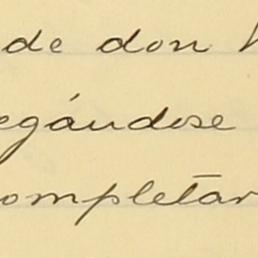 de don
egándose
ompletar